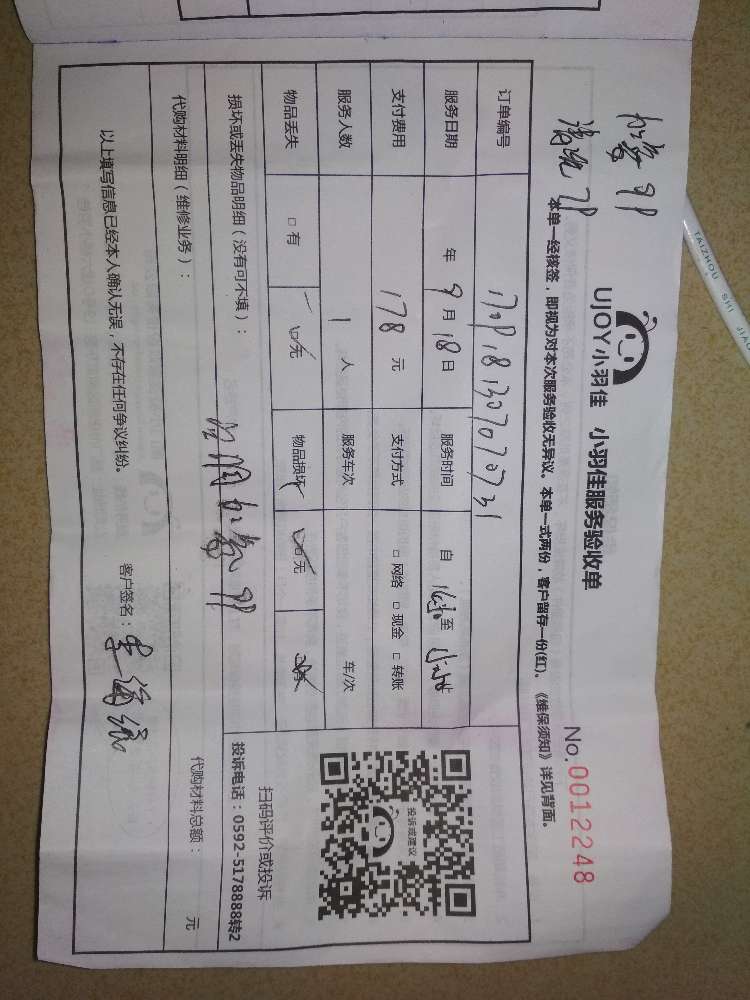 UJOY小羽佳 小羽佳服务验收单
No.0012248
本单一经核签,即视为对本次服务验收无异议。本单一式两份,客户留存一份(红)。《维保须知》详见背面。
订单编号
服务日期 年 9 月 18 日 服务时间 自 至 止
支付费用 178 元 支付方式 □ 网络 □ 现金 □ 转账
服务人数 1 人 服务车次 车/次
物品丢失 □ 有 □ 无 物品损坏 □ 无 □ 有
损坏或丢失物品明细(没有可不填):
代购材料明细(维修业务): 代购材料总额: 元
以上填写信息已经本人确认无误,不存在任何争议纠纷。
客户签名:
投诉或建议
扫码评价或投诉
投诉电话:0592-5178888转2
TAIZHOU SHI JIAO